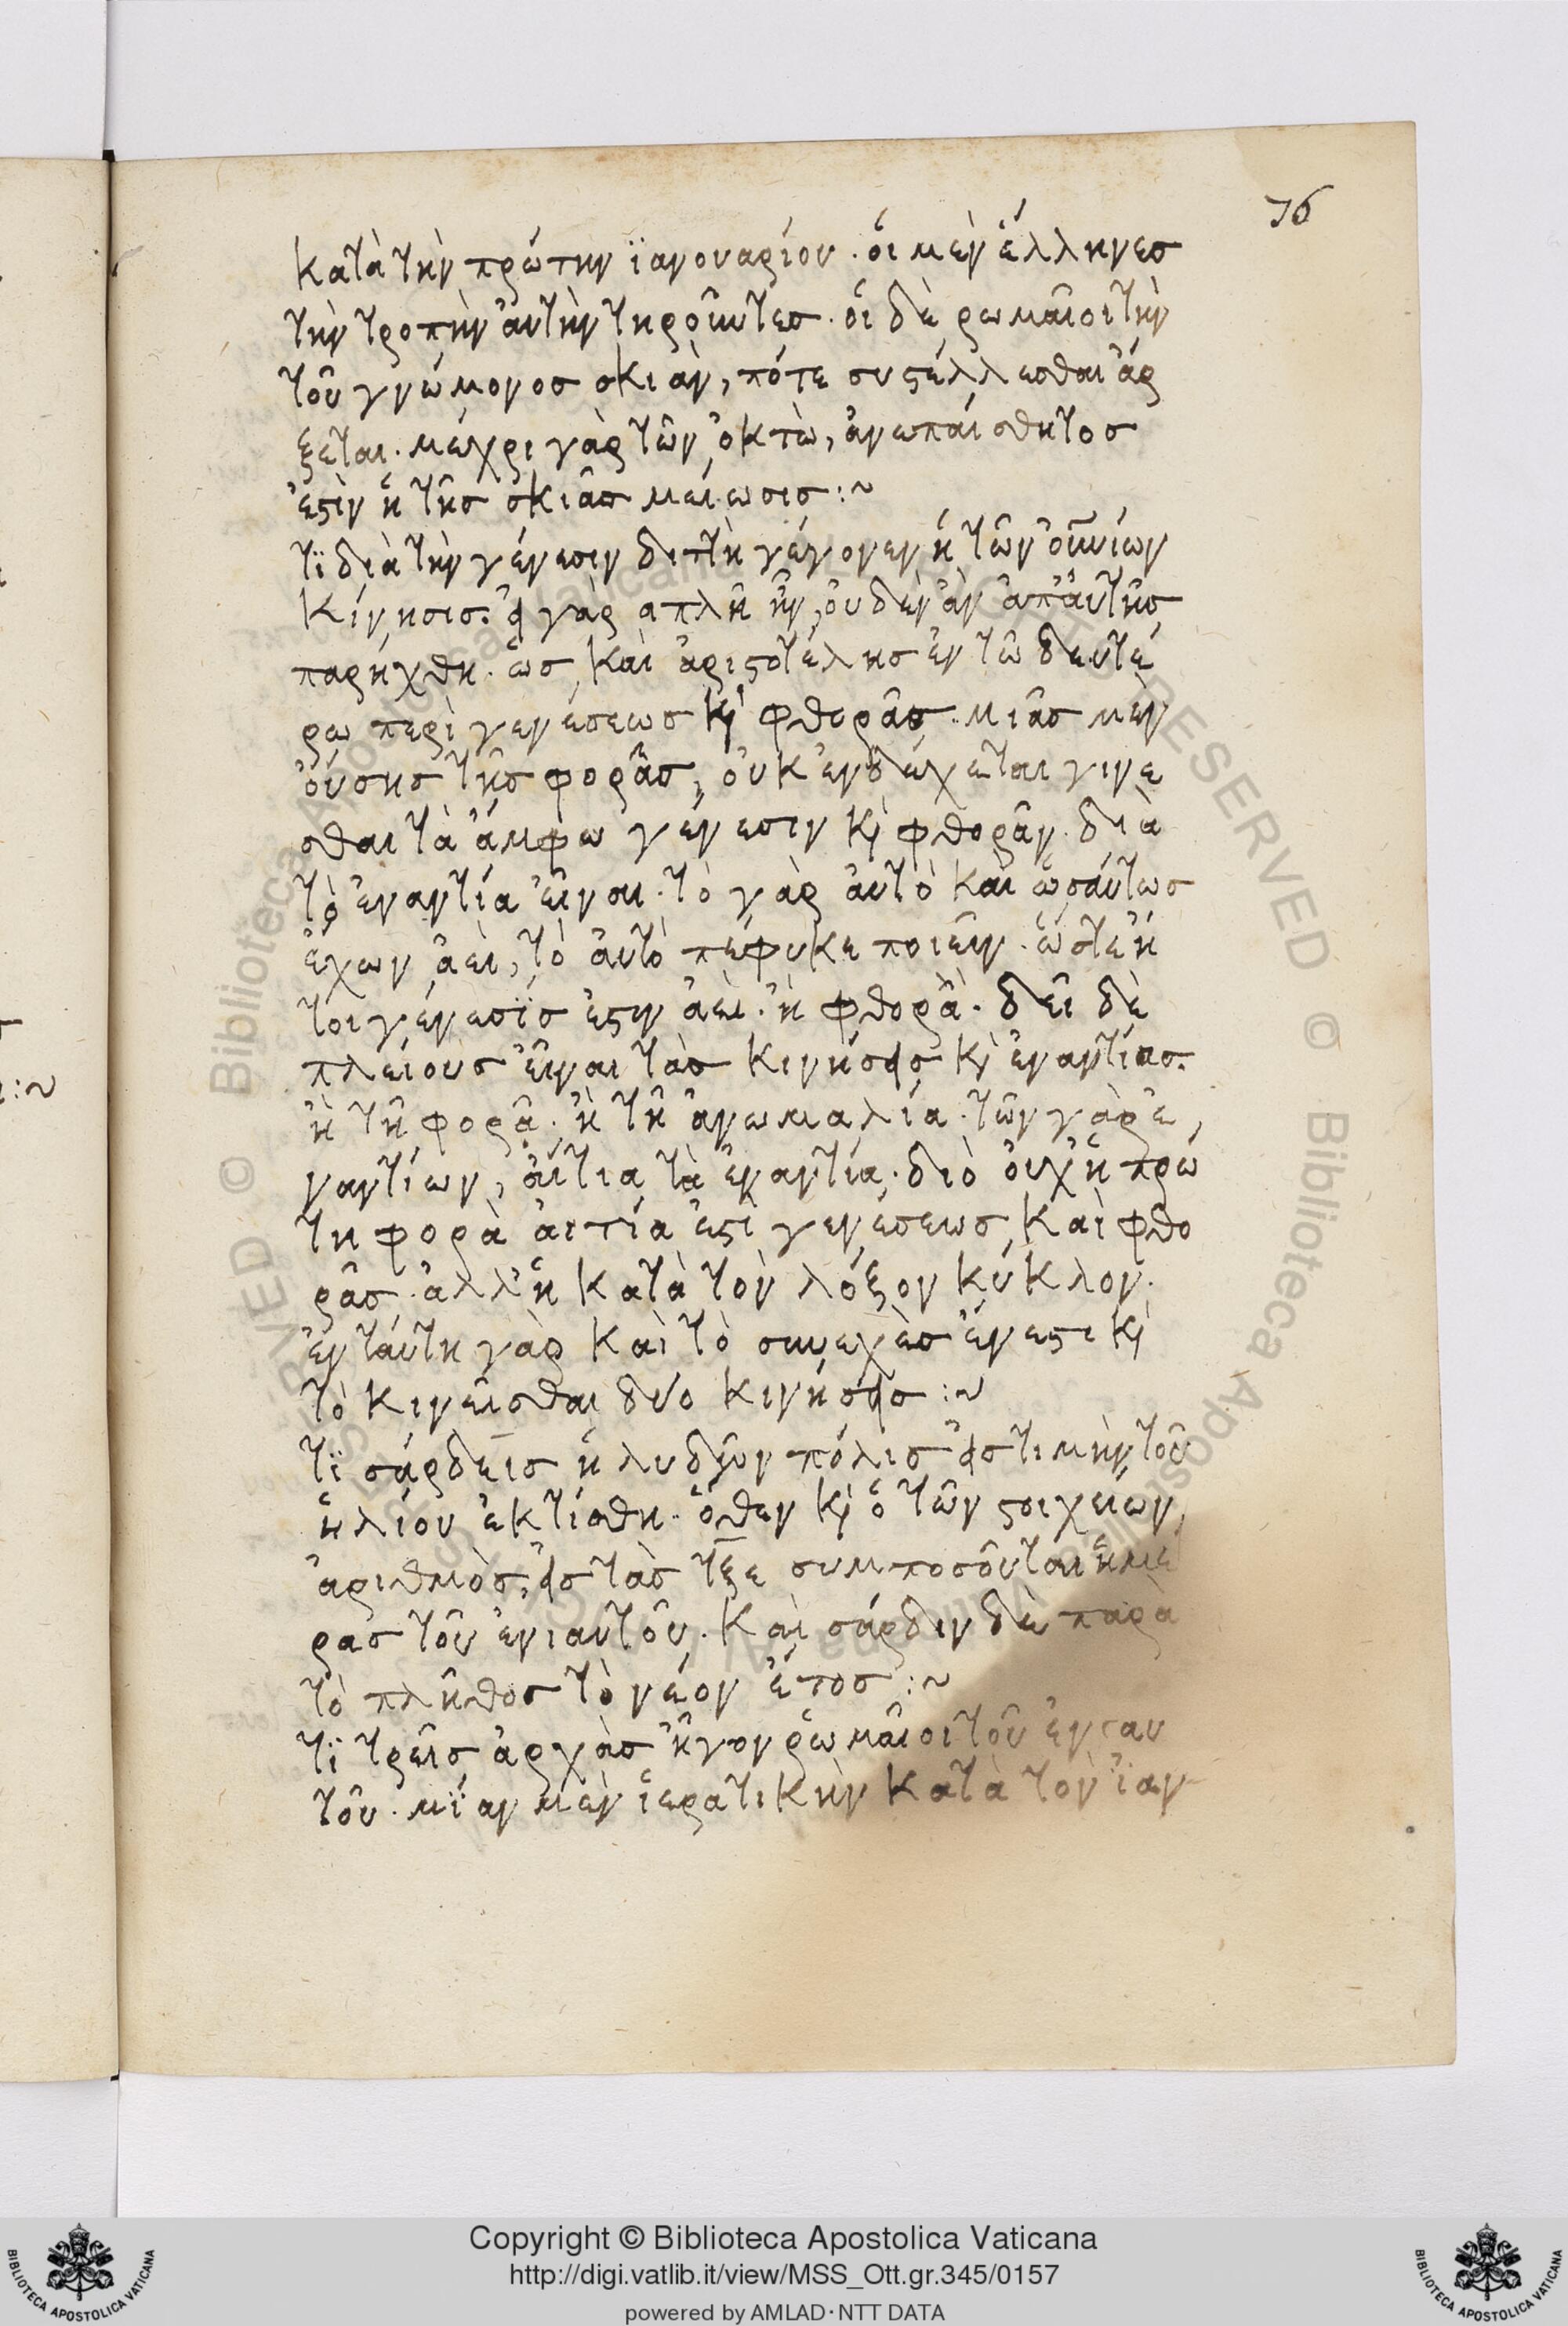 76
κατὰ τὴν πρώτην ϊανουαρίου. ὁι μὲν ἕλληνεσ
τὴν τροπὴν ἀυτὴν τηροῦντεσ. ὁι δὲ ρωμαῖοι τὴν
τοῦ γνώμονοσ σκιὰν, πότε συϛέλλεσθαι ἄρ
ξεται. μέχρι γὰρ τῶν ὀκτὼ, ἀνεπαίσθητοσ
ἐϛὶν ἡ τῆσ σκιᾶσ μείωσισ :~
τϊ διὰ τὴν γένεσιν διττὴ γέγονεν ἡ τῶν οὐνίων
κίνησισ. εἰ γὰρ απλῆ ἦν, ὀυδὲν ἂν ἀπ' ἀυτῆσ
παρήχθη. ὡσ καὶ ἀριϛοτέλησ ἐν τῶ δευτέ
ρω περὶ γενέσεωσ κὶ φθορᾶσ. μιᾶσ μὲν
ὀύσησ τῆσ φορᾶσ, ὀυκ ἐνδέχεται γινε
σθαι τὰ ἄμφω γένεσιν κὶ φθορὰν. διὰ
τὸ ἐναντία εἶναι. τὸ γὰρ ἀυτὸ καὶ ὡσάυτωσ
ἔχων ἀεὶ, τὸ ἀυτὸ πέφυκε ποιεῖν. ὥστε ἤ
τοι γένεσϊσ ἐϛιν ἀεὶ. ἢ φθορὰ. δεῖ δὲ
πλείουσ εἶναι τὰσ κινήσεισ κὶ ἐναντίασ.
ἢ τῆ φορᾶ. ἢ τῆ ἀνωμαλία. τῶν γὰρ ἐ
ναντίων, ἀίτια τὰ ἐναντία. διὸ ὀυχ' ἡ πρώ
τη φορὰ ἀιτία ἐϛὶ γενέσεωσ καὶ φθο
ρᾶσ. ἀλλ' ἡ κατὰ τὸν λόξον κύκλον.
ἐν τάυτη γὰρ καὶ τὸ συνεχὲσ ἔνεϛι κὶ
τὸ κινεῖσθαι δύο κινήσεισ :~
τϊ σάρδεισ ἡ λυδῶν πόλισ εἰσ τιμὴν τοῦ
ἡλίου ἐκτίσθη. ὅθεν κὶ ὁ τῶν ϛοιχείων
ἀριθμὸσ, εἰσ τὰσ τξε συμποσοῦται ἡμέ
ρασ τοῦ ἐνιαυτοῦ. καὶ σάρδιν δὲ παρὰ
τὸ πλῆθοσ τὸ νέον ἔτοσ :~
τϊ τρεῖσ ἀρχὰσ ἦγον ῥωμαῖοι τοῦ ἐνιαυ
τοῦ. μϊαν μὲν ἱερατικὴν κατὰ τὸν ϊαν
Copyright © Biblioteca Apostolica Vaticana
http://digi.vatlib.it/view/MSS_Ott.gr.345/0157
powered by AMLAD·NTT DATA